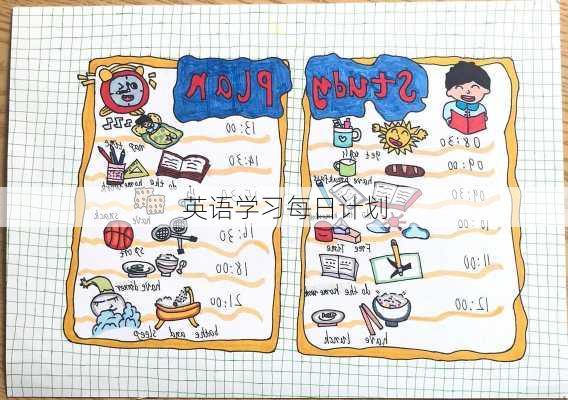 Study
08:30
get up
09:00
have breakfast
09:30
Free Time
11:00
do the home work
12:00
have lunch
Plan
13:00
nap time
14:30
do the home work
have snack
16:30
18:00
have dinner
21:00
bathe and sleep
英语学习每日计划